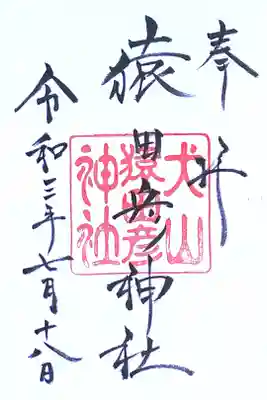 奉拝
猿田彦神社
犬山
猿田彦
神社
令和三年七月十八日